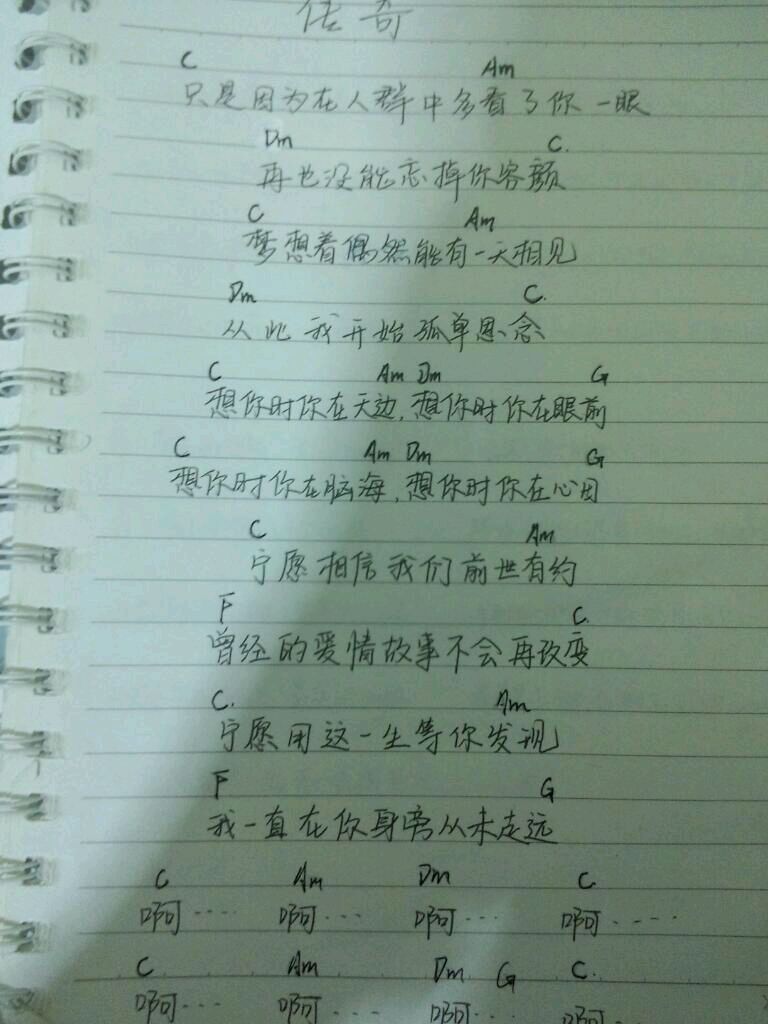 传奇
C Am
只是因为在人群中多看了你一眼
Dm C.
再也没能忘掉你容颜
C Am
梦想着偶然能有一天相见
Dm C.
从此我开始孤单思念
C Am Dm G
想你时你在天边,想你时你在眼前
C Am Dm G
想你时你在脑海,想你时你在心田
C Am
宁愿相信我们前世有约
F C.
曾经的爱情故事不会再改变
C. Am
宁愿用这一生等你发现
F G
我一直在你身旁从未走远
C Am Dm C.
啊···· 啊··· 啊··· 啊····
C Am Dm G C.
啊··· 啊··· 啊··· 啊···